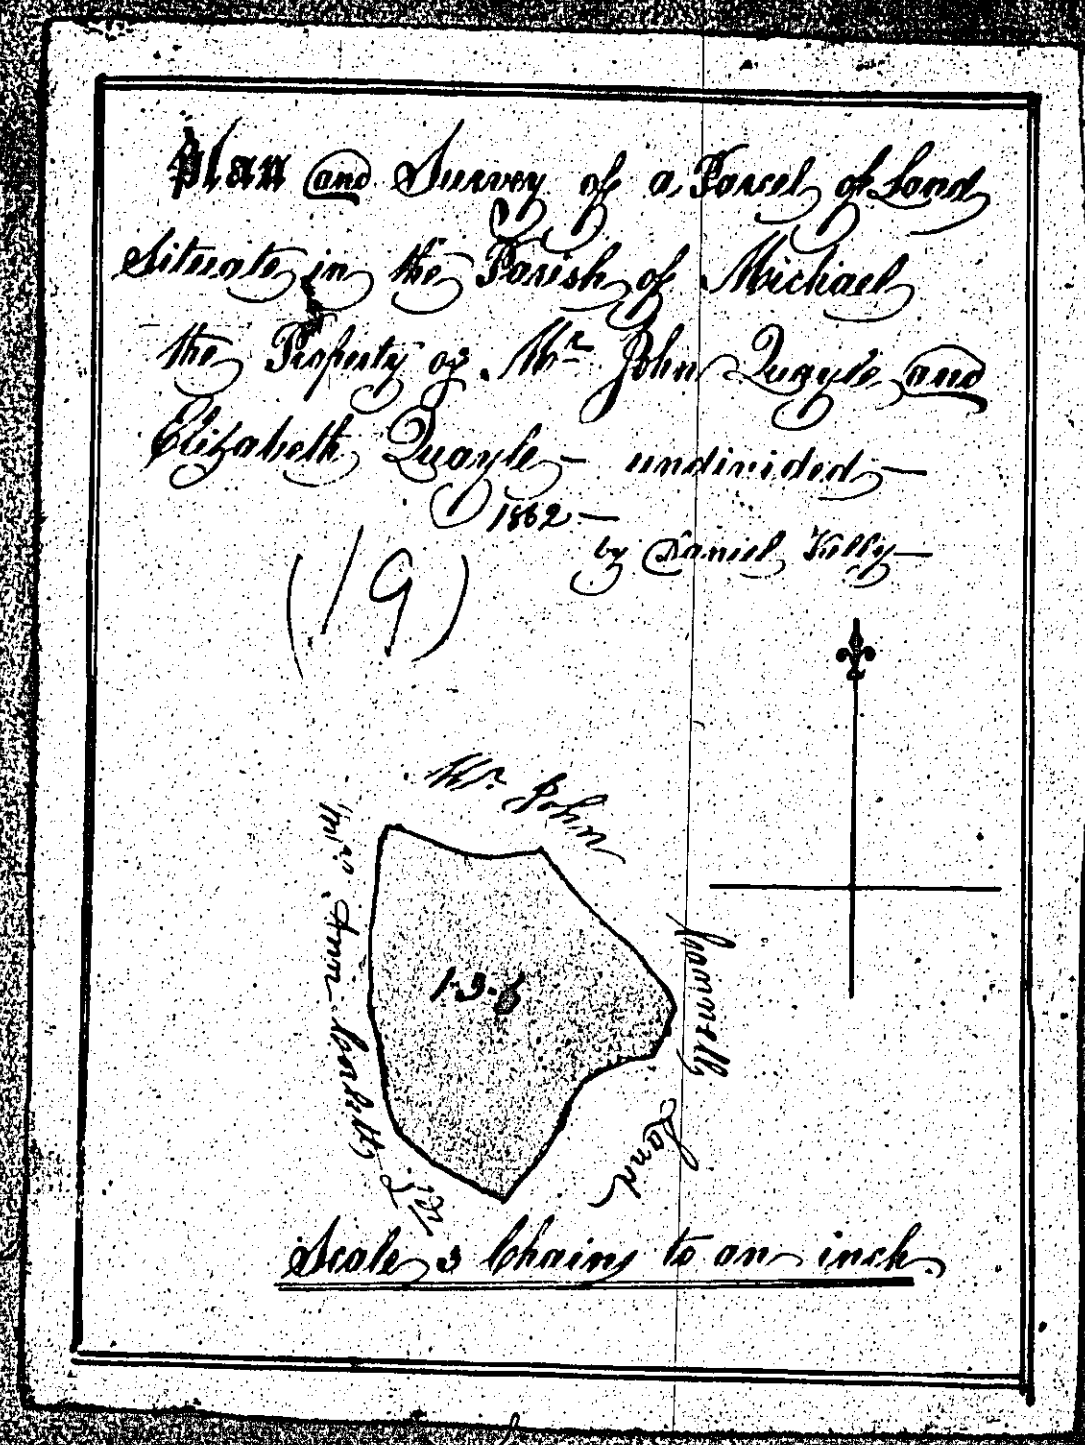 Plan and Survey of a Parcel of Land
Situate in the Parish of Michael
the Property of Mr John Quayle and
Elizabeth Quayle – undivided –
1862 –
by Daniel Kelly –
(19)
Mr. John
Cannell
Land
Mrs. Ann Corlett
1.3.
Scale 3 Chains to an inch